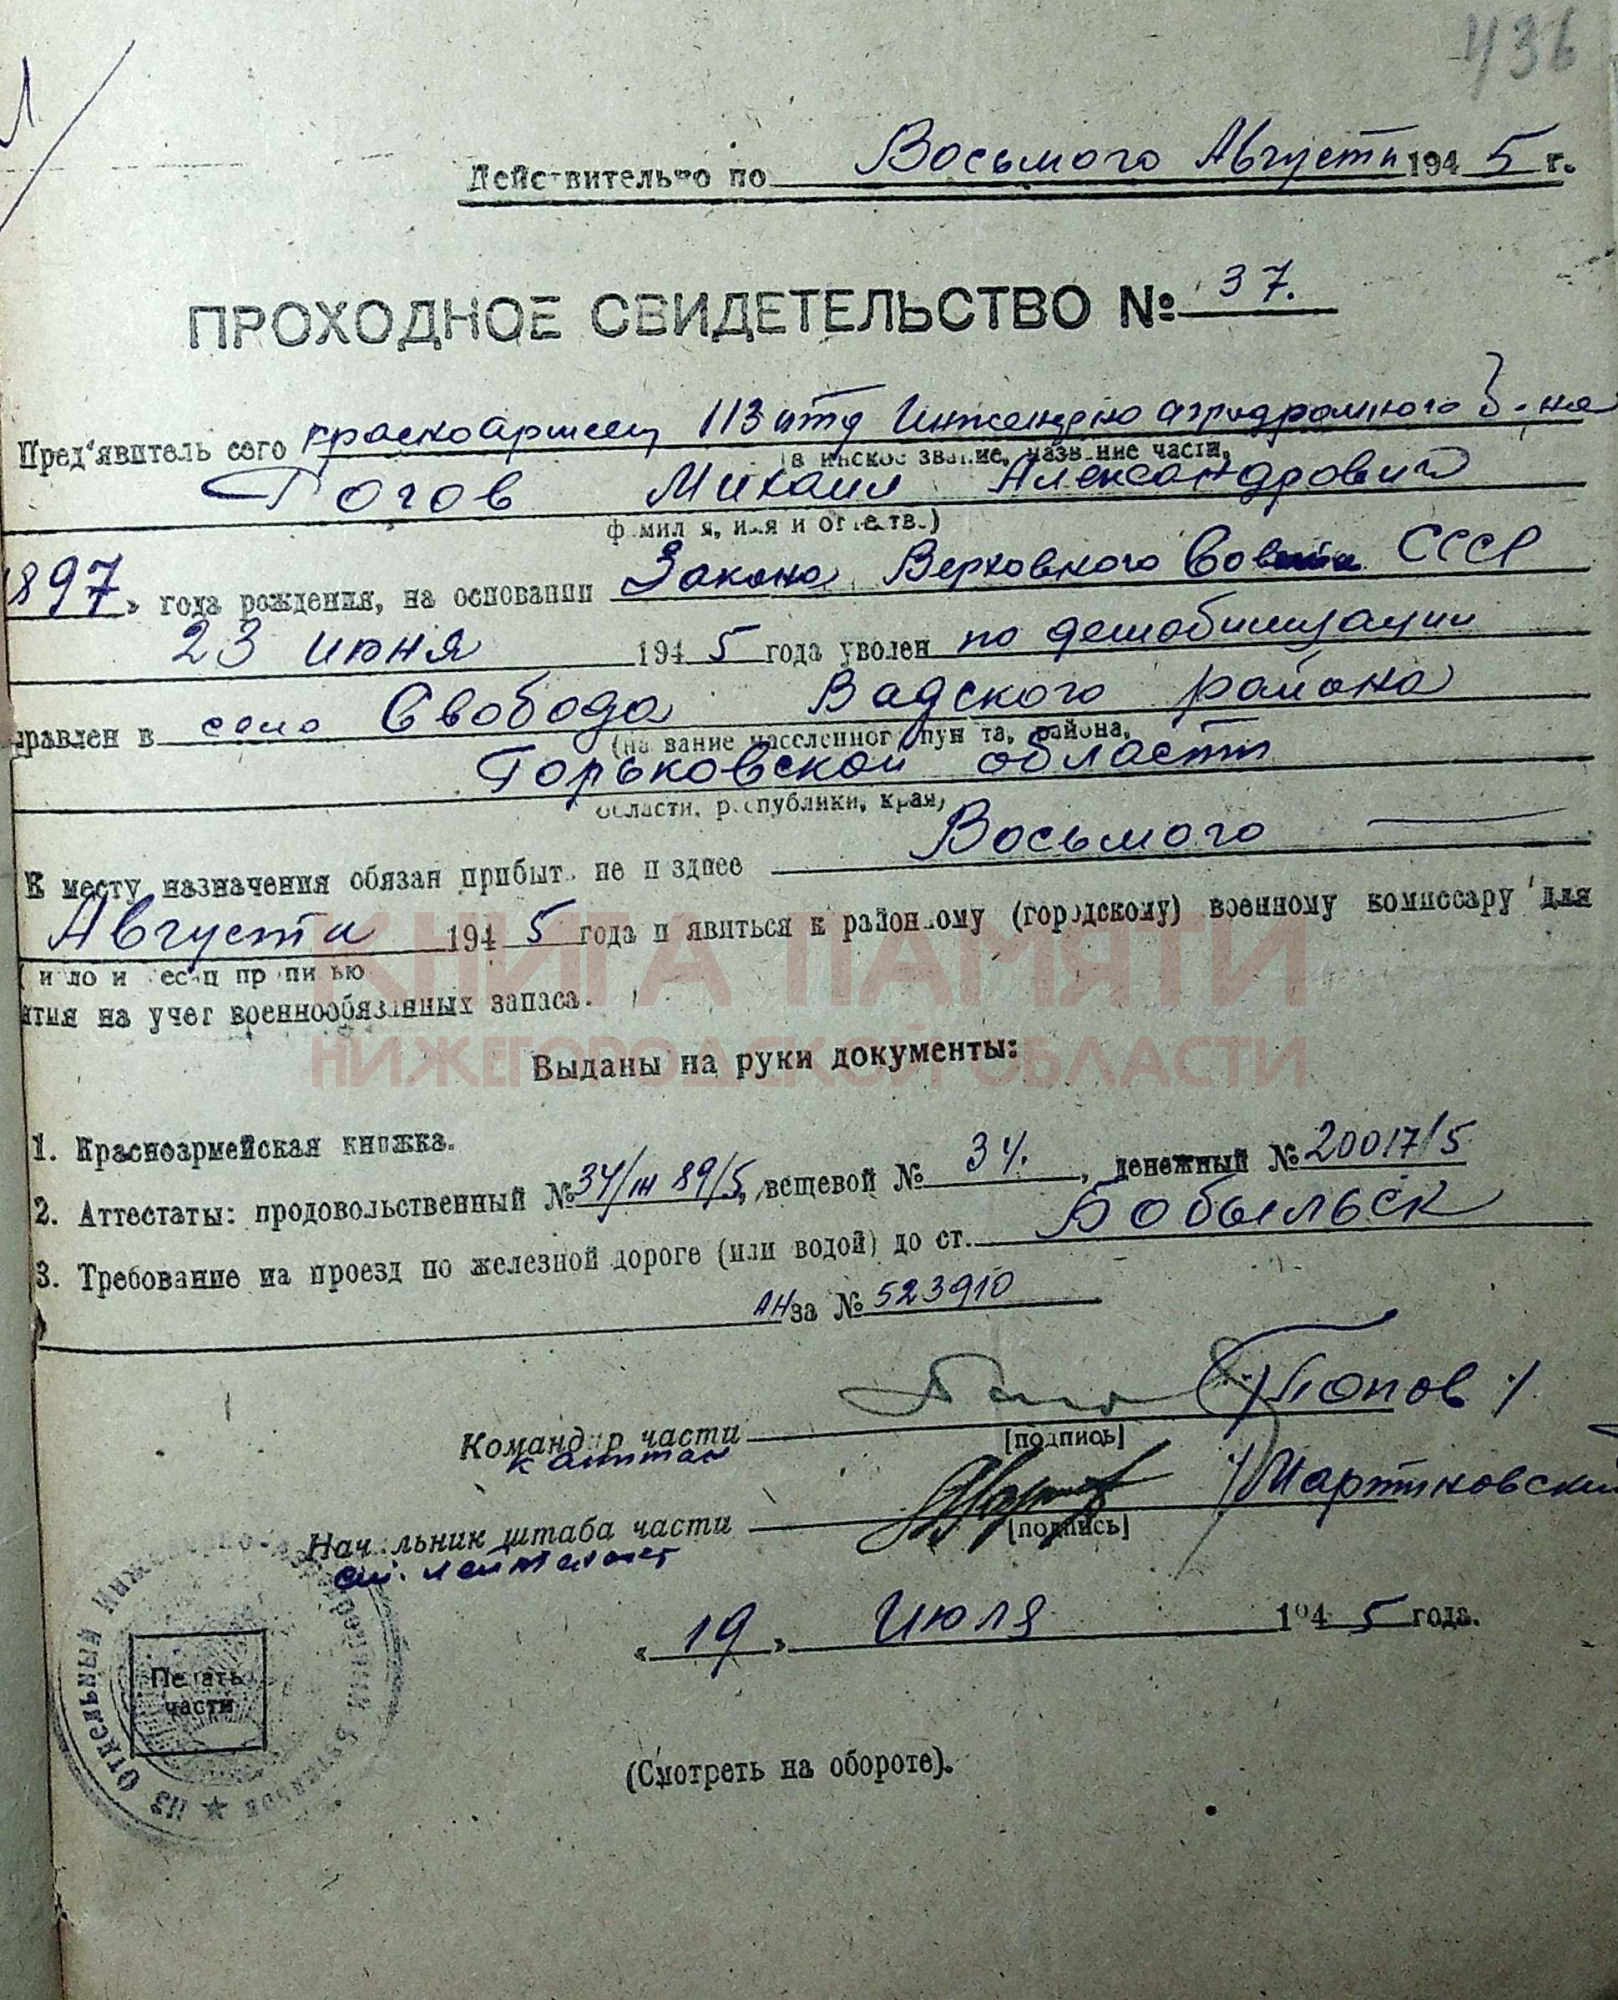 436
Действительно по Восьмого Августа 1945 г.
ПРОХОДНОЕ СВИДЕТЕЛЬСТВО № 37.
Пред'явитель сего красноармеец 113 Инженерно аэродромного б-на
(воинское звание, название части,
Гогов Михаил Александрович
фамилия, имя и отчество)
1897 года рождения, на основании Закона Верховного Совета СССР
23 июня 1945 года уволен по демобилизации
правлен в село Свобода Вадского района
(название населенного пункта, района,
Горьковской области
области, республики, края)
К месту назначения обязан прибыть не позднее Восьмого
Августа 1945 года и явиться к районному (городскому) военному комиссару для
(число и месяц прописью
ятия на учет военнообязанных запаса.
КНИГА ПАМЯТИ
НИЖЕГОРОДСКОЙ ОБЛАСТИ
Выданы на руки документы:
1. Красноармейская книжка.
2. Аттестаты: продовольственный № 34/ 89/5, вещевой № 34. , денежный № 20017/5
3. Требование на проезд по железной дороге (или водой) до ст. Бобыльск
АН за № 523910
Командир части /Попов/
капитан [подпись]
Начальник штаба части /Мартиковский
ст. лейтенант [подпись]
« 19 » Июля 1945 года.
113 Отдельный Инженерно-Аэродромный Батальон
Печать
части
(Смотреть на обороте).